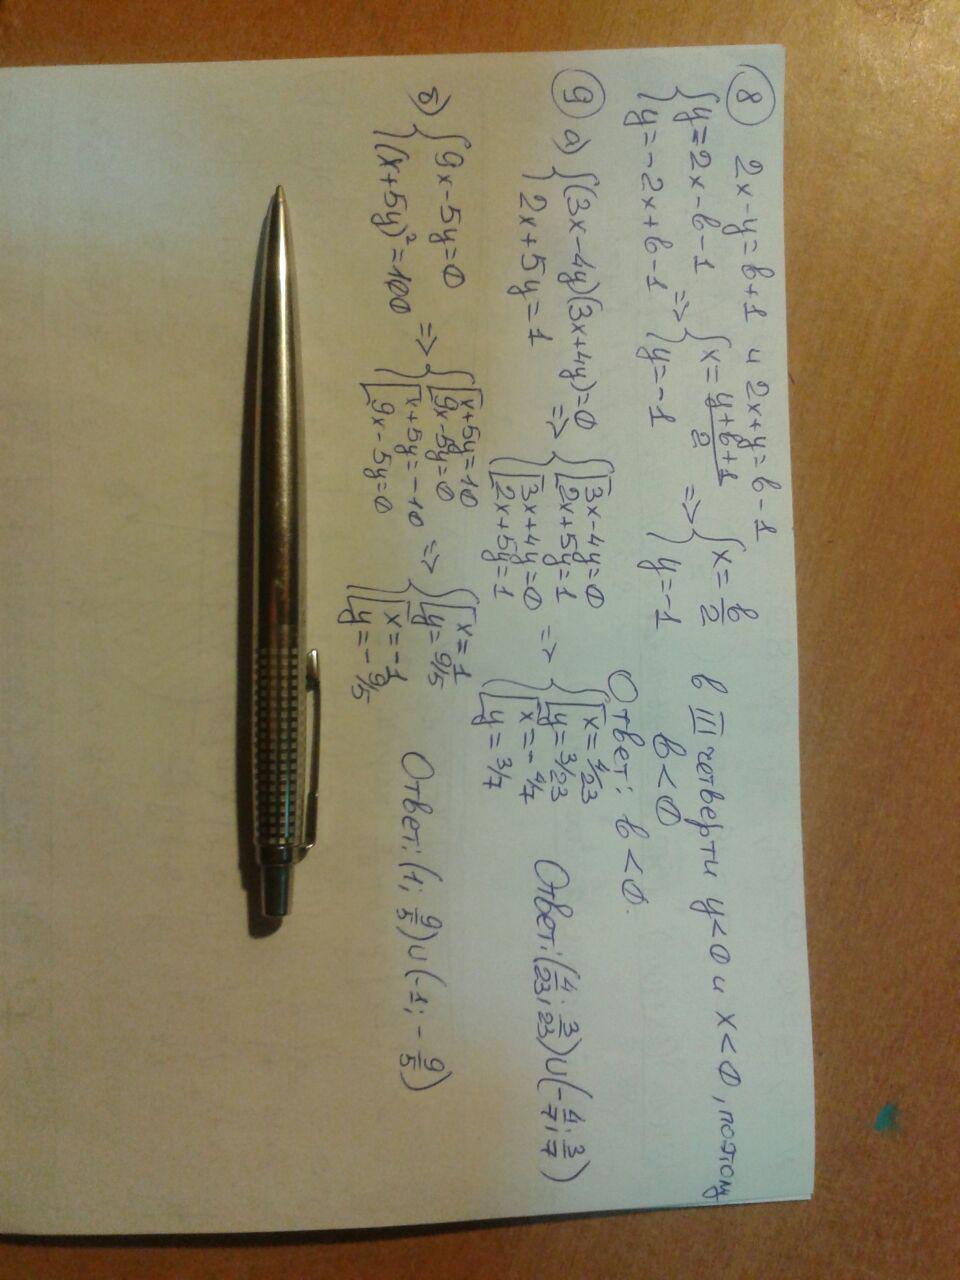 8) 2x-y=b+1 и 2x+y=b-1
{y=2x-b-1 {y=-2x+b-1 => {x=(y+b+1)/2 {y=-1 => {x=b/2 {y=-1 в III четверти y<0 и x<0, поэтому b<0
Ответ: b<0.
9) а) {(3x-4y)(3x+4y)=0 {2x+5y=1 => {[3x-4y=0 [2x+5y=1 {[3x+4y=0 [2x+5y=1 => {[x=4/23 [y=3/23 {[x=-4/7 [y=3/7 Ответ: (4/23; 3/23)∪(-4/7; 3/7)
б) {9x-5y=0 {(x+5y)²=100 => {[x+5y=10 [9x-5y=0 {[x+5y=-10 [9x-5y=0 => {[x=1 [y=9/5 {[x=-1 [y=-9/5 Ответ: (1; 9/5)∪(-1; -9/5)